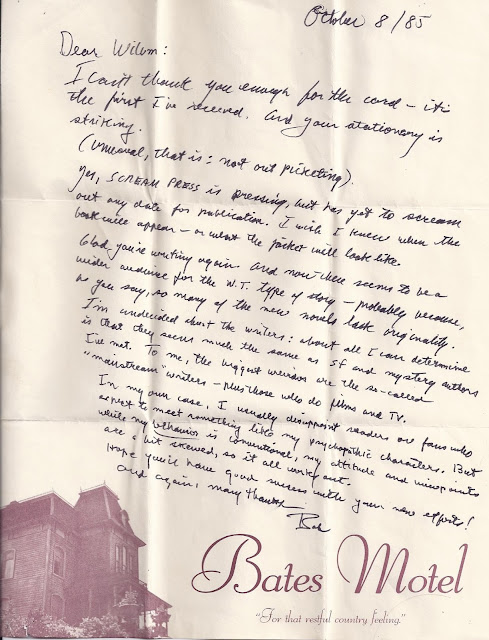 October 8/85
Dear Wilum:
I can't thank you enough for the card – it's
the first I've received. And your stationery is
striking.
(Unusual, that is: not out picketing).
Yes, SCREAM PRESS is pressing, but has yet to scream
out any date for publication. I wish I knew when the
book will appear – or what the jacket will look like.
Glad you're writing again. And now there seems to be a
wider audience for the W.T. type of story – probably because,
as you say, so many of the new novels lack originality.
I'm undecided about the writers: about all I can determine
is that they seem much the same as SF and mystery authors
I've met. To me, the biggest weirdos are the so-called
"mainstream" writers – plus those who do films and TV.
In my own case, I usually disappoint readers or fans who
expect to meet something like my psychopathic characters. But
while my behavior is conventional, my attitude and viewpoints
are a bit skewed, so it all works out.
Hope you'll have good success with your new efforts!
And again, many thanks
Bob
Bates Motel
"For that restful country feeling."